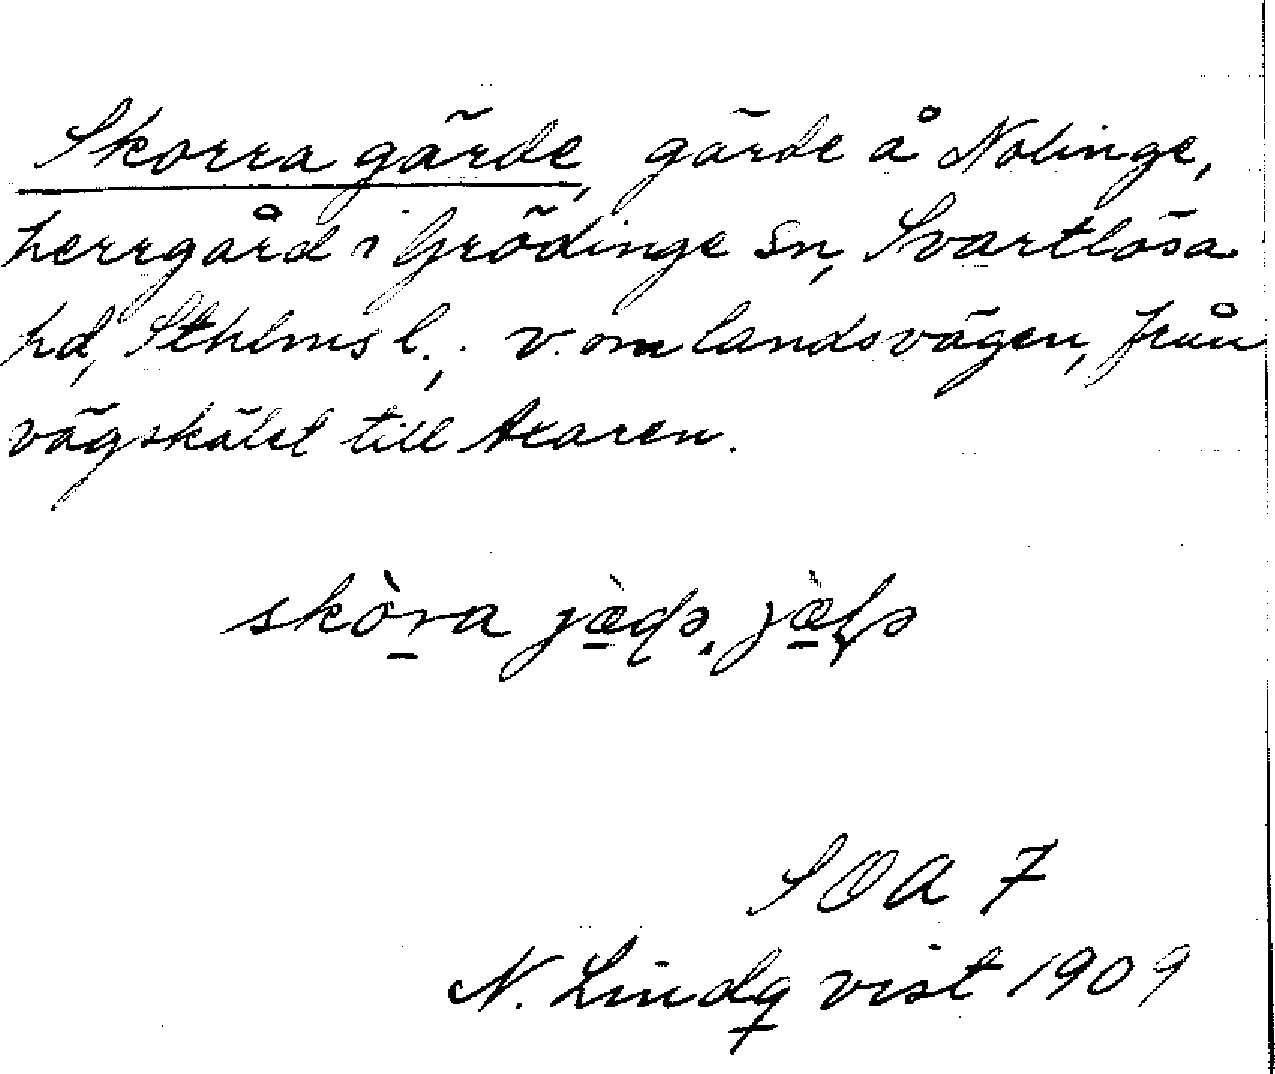 Skorra gärde, gärde å Nolinge,
herrgård i Grödinge sn, Svartlösa
hd, Sthlms l., v. om landsvägen, från
vägskälet till Axaren.
skòra
SOA 7
N. Lindqvist 1909